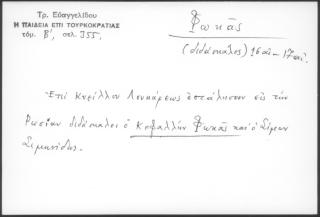 Τρ. Εὐαγγελίδου
Η ΠΑΙΔΕΙΑ ΕΠΙ ΤΟΥΡΚΟΚΡΑΤΙΑΣ
τόμ. Β', σελ. 355.
Φωκᾶς
(διδάσκαλος) 16 αἰ - 17 αἰ.
Ἐπὶ Κυρίλλου Λουκάρεως ἐστάλησαν εἰς τὴν
Ρωσίαν διδάσκαλοι ὁ Κεφαλλὴν Φωκᾶς καὶ ὁ Σίμων
Σιμωνίδης.